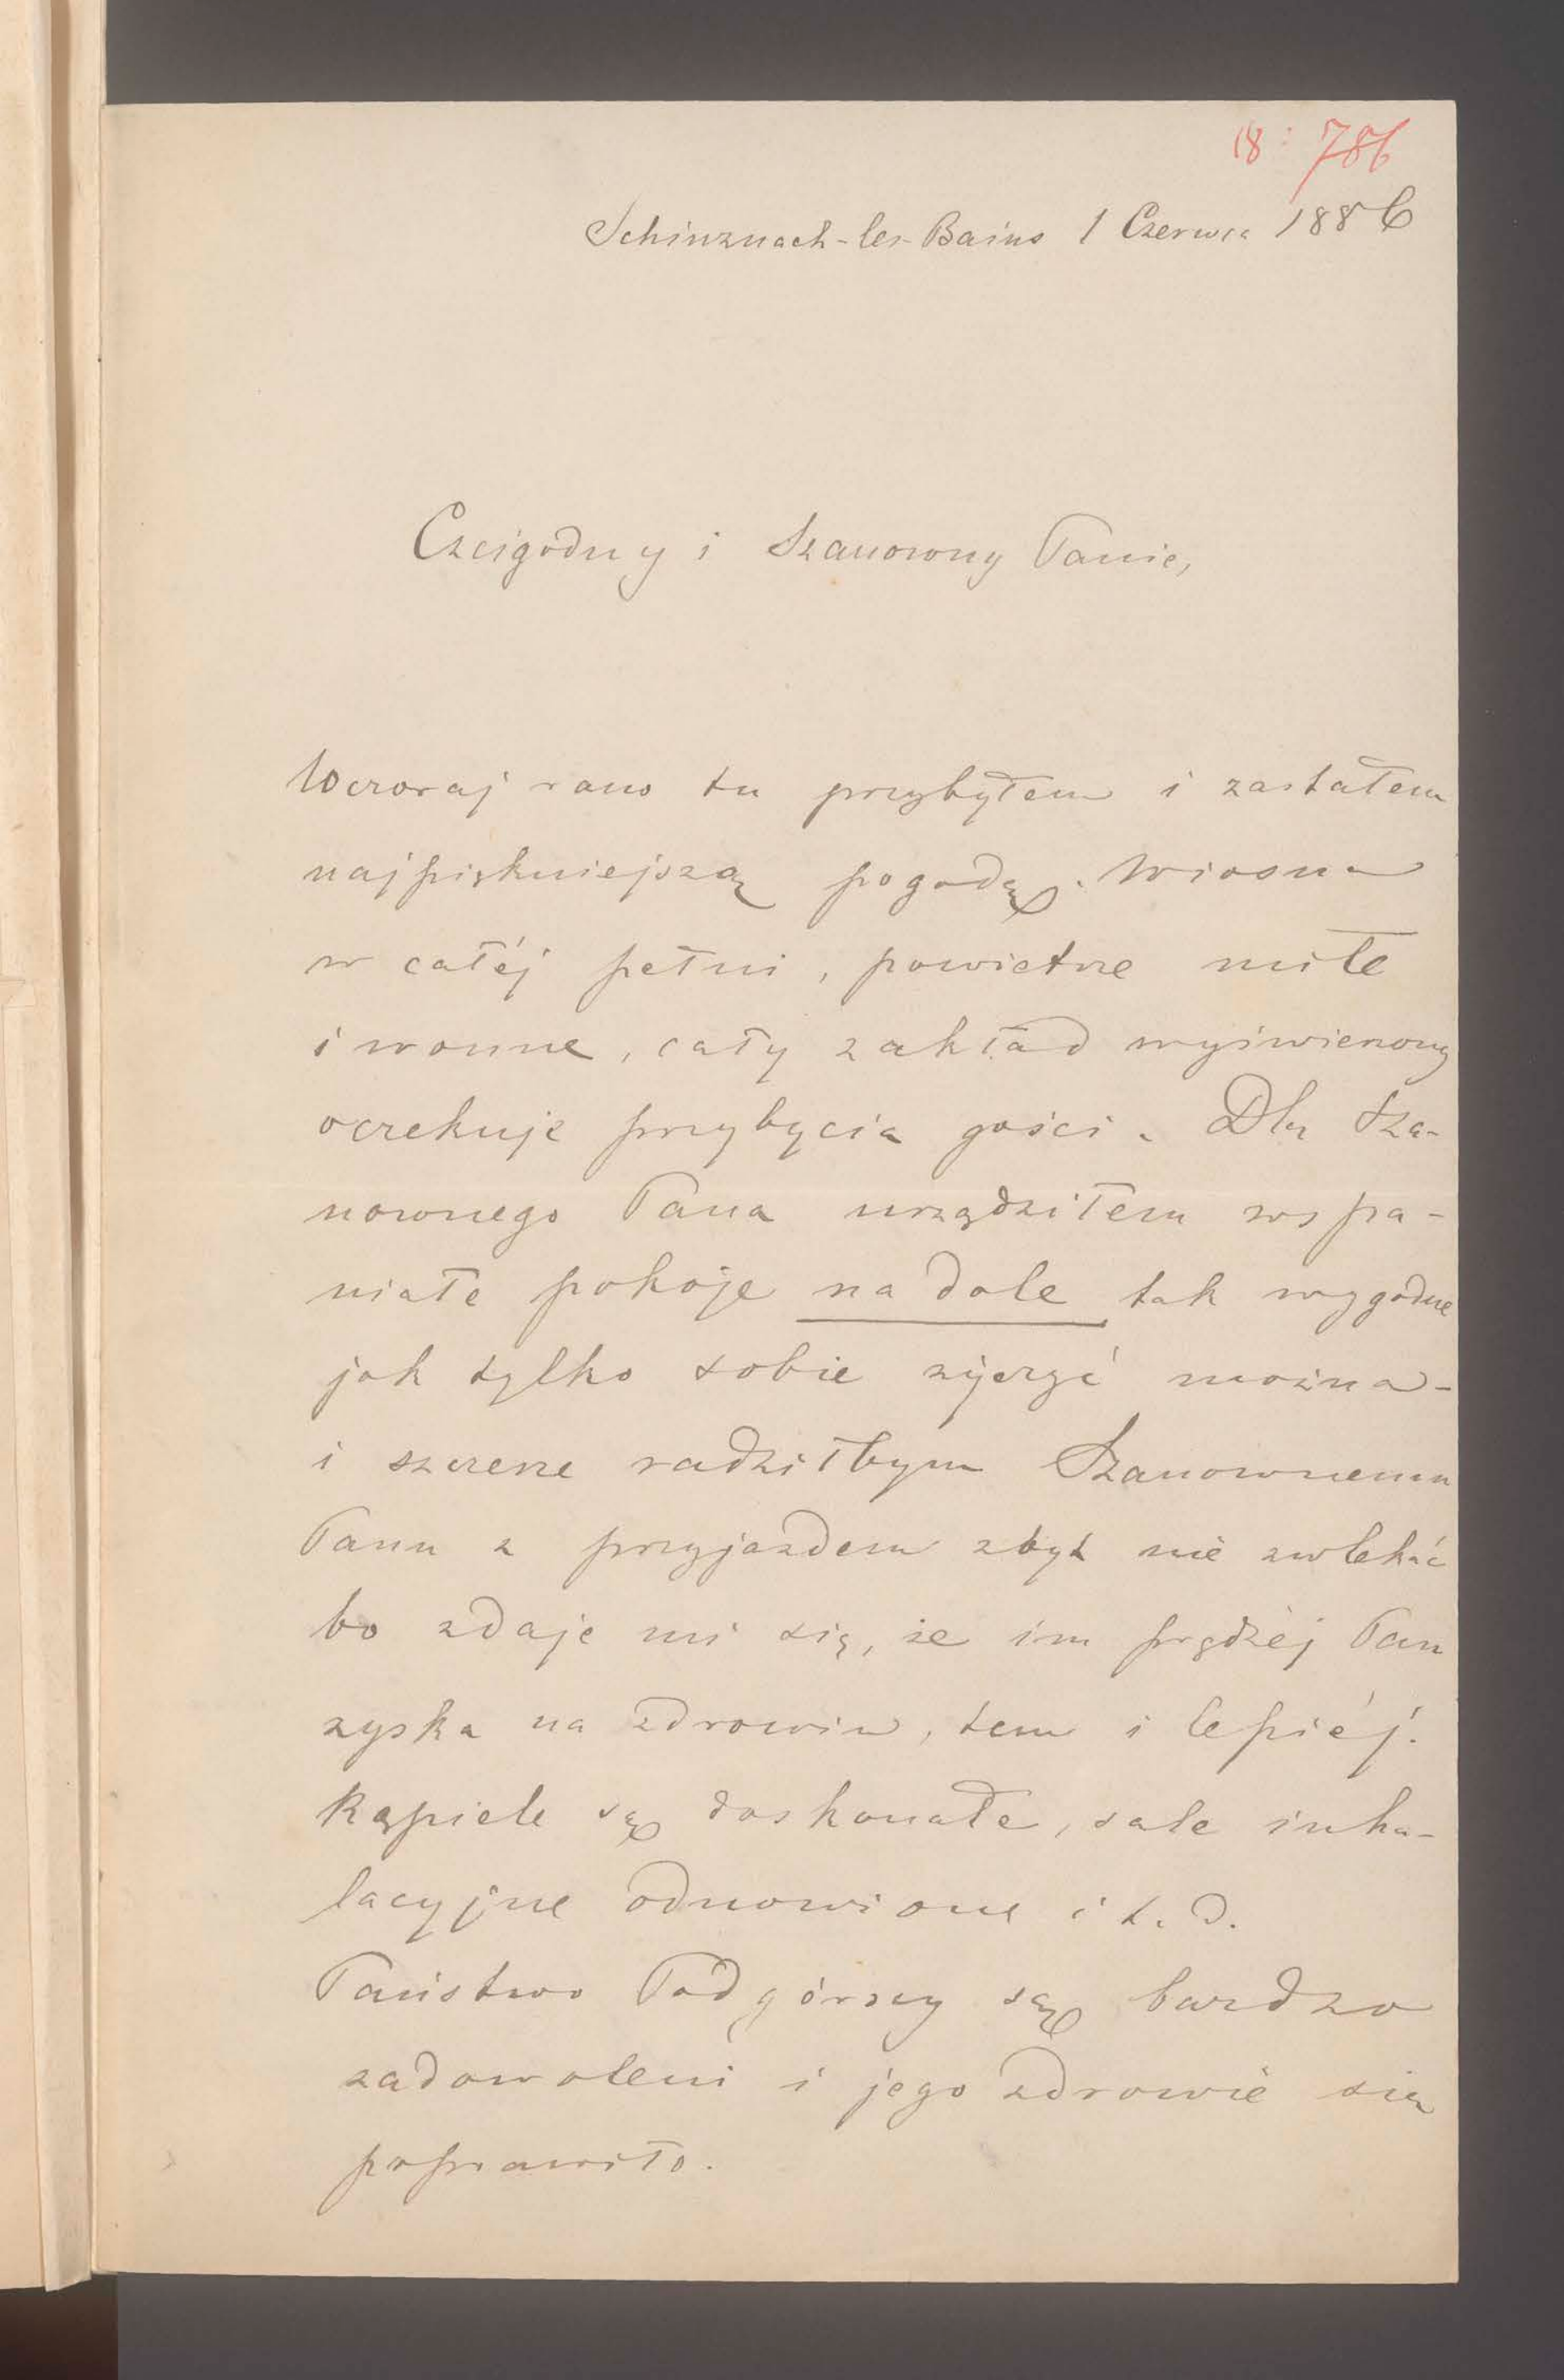 18: 786
Schinznach-les-Bains 1 Czerwca 1886
Czcigodny i Szanowny Panie,
Wczoraj rano tu przybyłem i zastałem
najpiękniejszą pogodę. Wiosna
w całéj pełni, powietrze miłe
i wonne, cały zakład wyświeżony
oczekuje przybycia gości. Dla Sza-
nownego Pana urządziłem wspa-
niałe pokoje na dole tak wygodne
jak tylko sobie życzyć można -
i szczerze radziłbym Szanownemu
Panu z przyjazdem zbyt nie zwlekać
bo zdaje mi się, że im prędzéj Pan
zyska na zdrowiu, tem i lepiéj.
Kąpiele są doskonałe, sale inha-
lacyjne odnowione i t. d.
Państwo Podgórscy są bardzo
zadowoleni i jego zdrowie się
poprawiło.